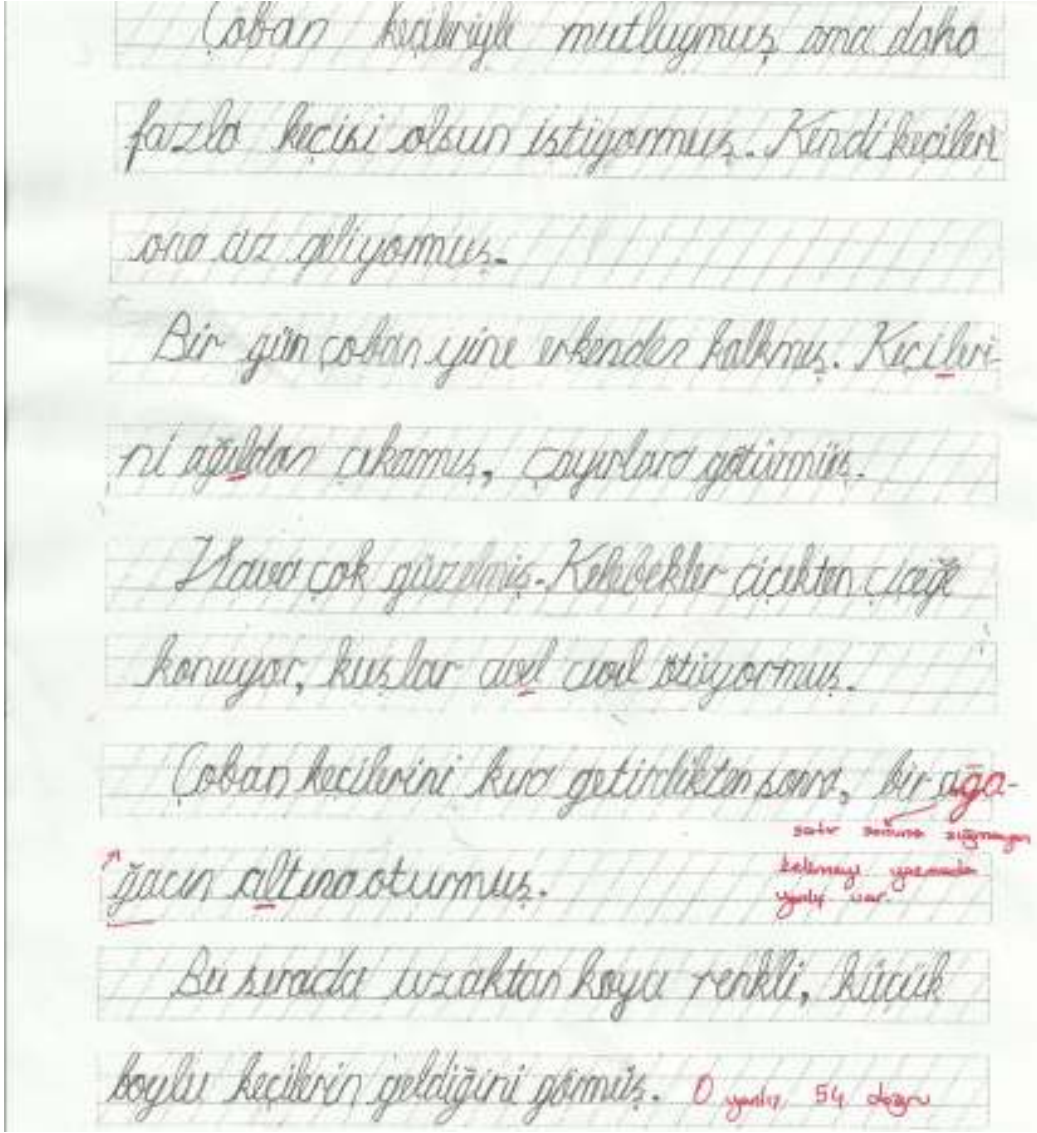 Çoban keçileriyle mutluymuş ama daha
fazla keçisi olsun istiyormuş. Kendi keçileri
ona az geliyormuş.
Bir gün çoban yine erkenden kalkmış. Keçileri-
ni ağıldan çıkamış, çayırlara götürmüş.
Hava çok güzelmiş. Kelebekler çiçekten çiçeğe
konuyor, kuşlar cıvıl cıvıl ötüyormuş.
Çoban keçilerini kıra getirdikten sonra, bir ağa-
satır sonuna sığmayan
ğacın altına oturmuş.
kelimeyi yazmada
yanlış var.
Bu sırada uzaktan koyu renkli, küçük
boylu keçilerin geldiğini görmüş. 0 yanlış 54 doğru